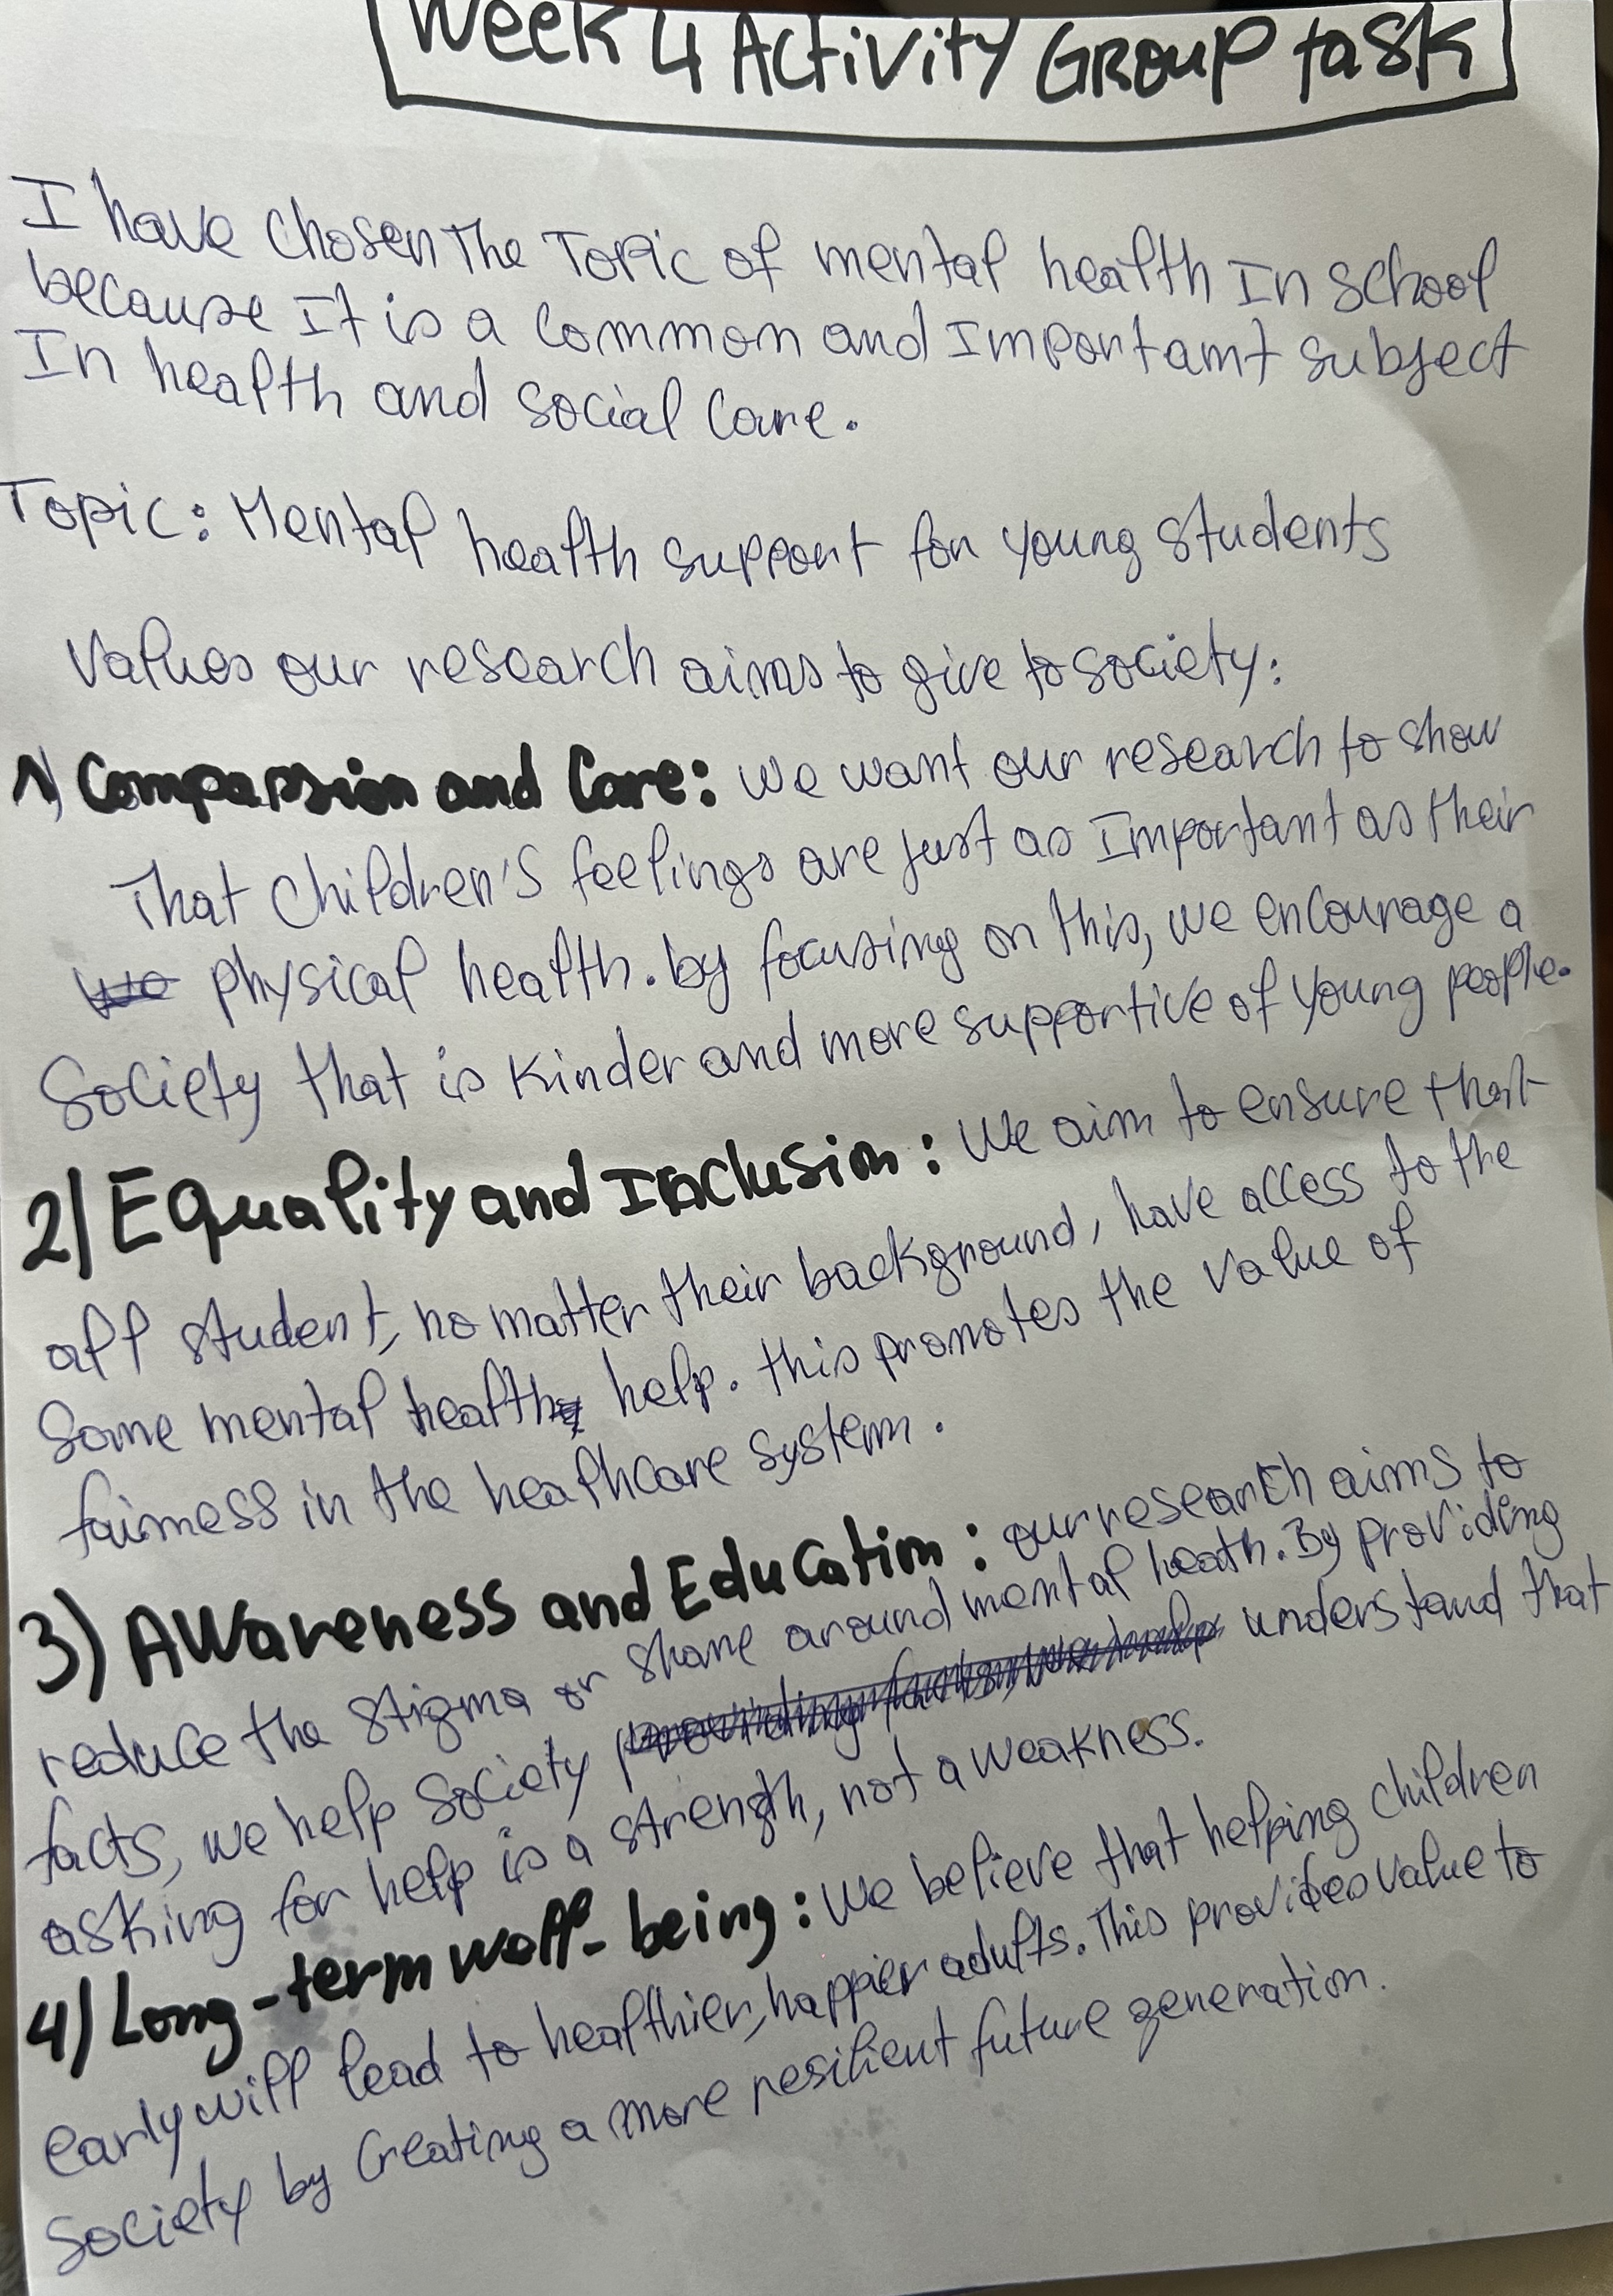 Week 4 Activity Group task
I have chosen The Topic of mental health In school
because It is a common and Important subject
In health and social care.
Topic: Mental health support for young students
Values our research aims to give to society:
1) Compassion and Care: we want our research to show
That children's feelings are just as Important as their
physical health. by focusing on this, we encourage a
Society that is Kinder and more supportive of young people.
2) Equality and Inclusion: We aim to ensure that
all student, no matter their background, have access to the
Same mental health help. this promotes the value of
fairness in the healhcare system.
3) Awareness and Education: our research aims to
reduce the stigma or shame around mental heath. By providing
facts, we help society understand that
asking for help is a strength, not a weakness.
4) Long-term well-being: We believe that helping children
early will lead to healthier, happier adults. This provides value to
Society by Creating a more resilient future generation.